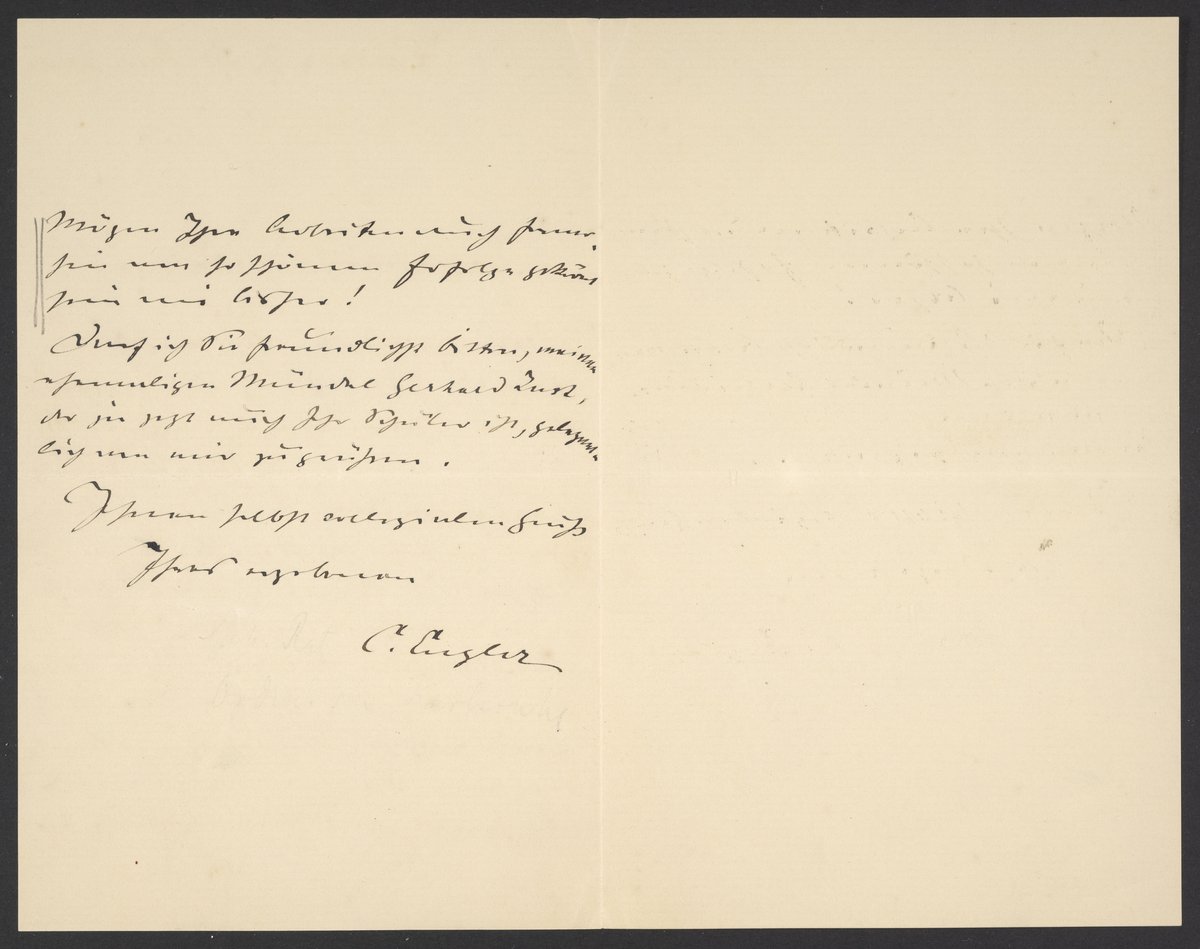 Mögen Ihre Arbeiten auch ferner-
hin von so schönem Erfolge gekrönt
sein wie bisher!
Darf ich Sie freundlichst bitten, meinen
ehemaligen Mündel Gerhard Just,
der ja jetzt auch Ihr Schüler ist, gelegent-
lich von mir zu grüssen.
Ihnen selbst collegialen Gruß
Ihres ergebenen
C. Engler